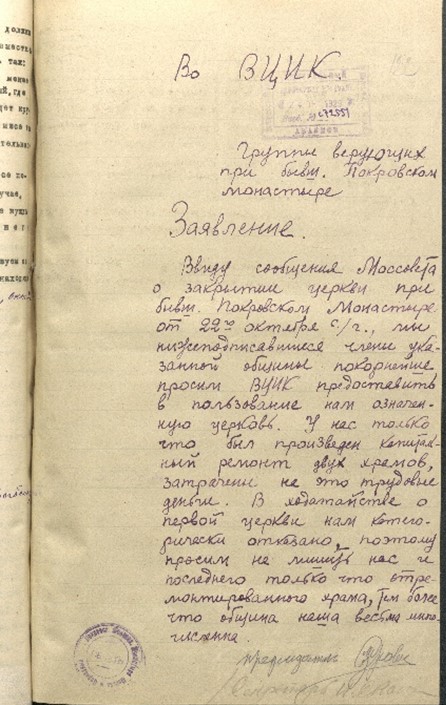 должна
так:
менее
где
мисс
Во ВЦИК.
с72551
Группы верующих
при бывш. Покровском
монастыре
Заявление.
Ввиду сообщения Моссовета
о закрытии церкви при
бывш. Покровском Монастыре
от 22го октября с/г., мы
нижеподписавшиеся члены ука-
занной общины покорнейше
просим ВЦИК предоставить
в пользование нам означен-
ную церковь. У нас только
что был произведен капиталь-
ный ремонт двух храмов,
затрачены на это трудовые
деньги. В ходатайстве о
первой церкви нам катего-
рически отказано, поэтому
просим не лишить нас и
последнего только что отре-
монтированного храма, тем более
что община наша весьма много-
численна.
председатель
Секретарь